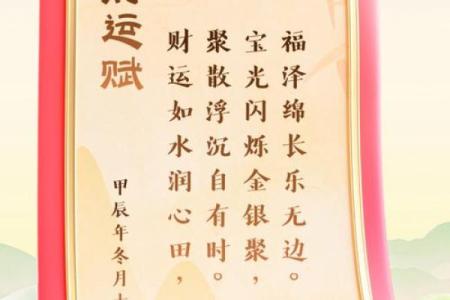 运赋
财运如水润心田，
聚散浮沉自有时。
宝光闪烁金银聚，
福泽绵长乐无边。
甲辰年冬月